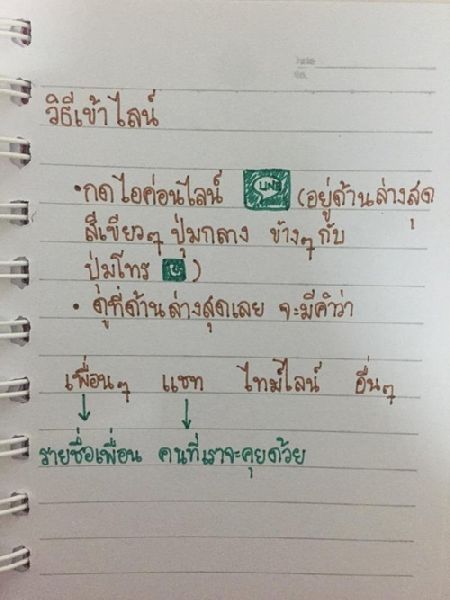 วิธีเข้าไลน์
•กดไอค่อนไลน์ LINE (อยู่ด้านล่างสุด
สีเขียวๆ ปุ่มกลาง ข้างๆกับ
ปุ่มโทร)
• ดูที่ด้านล่างสุดเลย จะมีคำว่า
เพื่อนๆ แชท ไทม์ไลน์ อื่นๆ
รายชื่อเพื่อน คนที่เราจะคุยด้วย